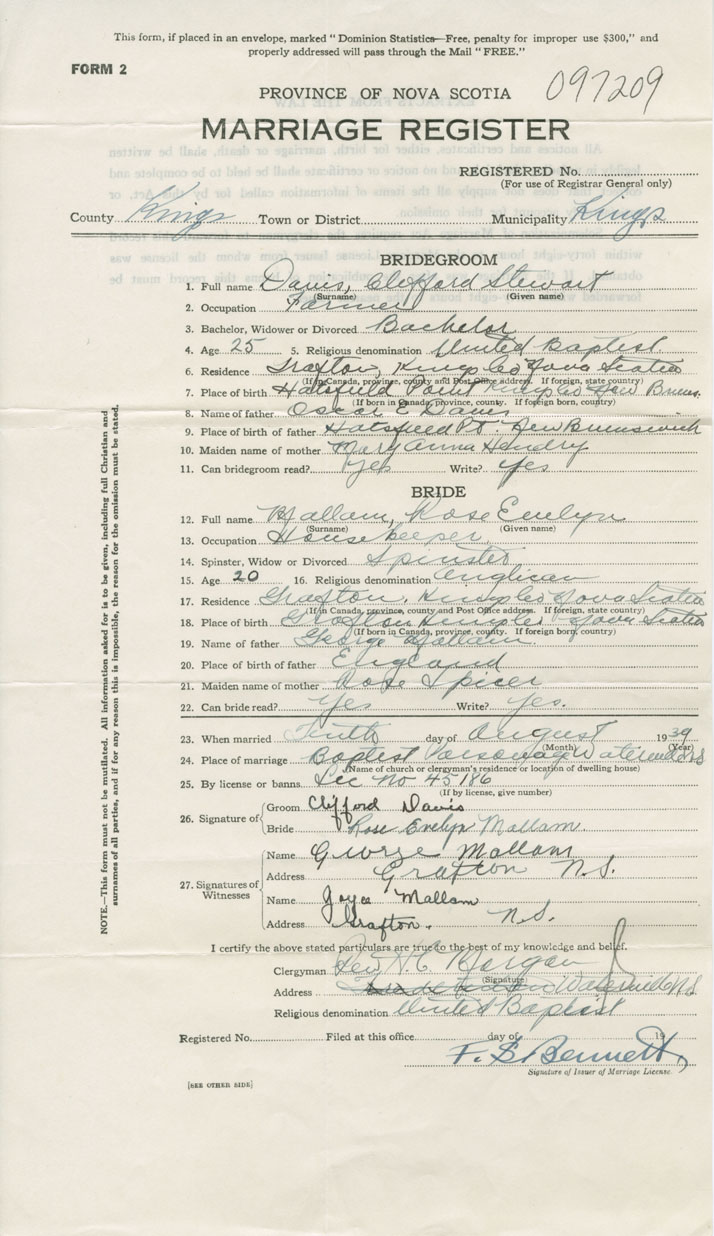 This form, if placed in an envelope, marked "Dominion Statistics—Free, penalty for improper use $300," and
properly addressed will pass through the Mail "FREE."
FORM 2
097209
PROVINCE OF NOVA SCOTIA
MARRIAGE REGISTER
REGISTERED No.
(For use of Registrar General only)
County Kings Town or District Municipality Kings
BRIDEGROOM
1. Full name Davis, Clifford Stewart
(Surname) (Given name)
2. Occupation Farmer
3. Bachelor, Widower or Divorced Bachelor
4. Age 25 5. Religious denomination United Baptist
6. Residence Grafton, Kings Co Nova Scotia
(If in Canada, province, county and Post Office address. If foreign, state country)
7. Place of birth Hatsfield Point Kings Co New Bruns.
(If born in Canada, province, county. If foreign born, country)
8. Name of father Oscar E Davis
9. Place of birth of father Hatsfield Pt. New Brunswick
10. Maiden name of mother Mary Anna Hendry
11. Can bridegroom read? Yes Write? Yes
BRIDE
12. Full name Mallam, Rose Evelyn
(Surname) (Given name)
13. Occupation Housekeeper
14. Spinster, Widow or Divorced Spinster
15. Age 20 16. Religious denomination Anglican
17. Residence Grafton, Kings Co Nova Scotia
(If in Canada, province, county and Post Office address. If foreign, state country)
18. Place of birth Grafton Kings Co Nova Scotia
(If born in Canada, province, county. If foreign born, country)
19. Name of father George Mallam
20. Place of birth of father England
21. Maiden name of mother Rose Spicer
22. Can bride read? Yes Write? Yes.
23. When married Tenth day of August 1939
(Month) (Year)
24. Place of marriage Baptist Parsonage Waterville N.S
(Name of church or clergyman's residence or location of dwelling house)
25. By license or banns Lic No 45186
(If by license, give number)
26. Signature of Groom Clifford Davis
Bride Rose Evelyn Mallam
27. Signatures of Witnesses
Name George Mallam
Address Grafton N.S.
Name Joyce Mallam
Address Grafton. N.S.
I certify the above stated particulars are true to the best of my knowledge and belief.
Clergyman Rev H.C.
(Signature)
Address Waterville N.S
Religious denomination United Baptist
Registered No. Filed at this office day of 19
F. B. Bennett
Signature of Issuer of Marriage License.
[SEE OTHER SIDE]
NOTE.—This form must not be mutilated. All information asked for is to be given, including full Christian and
surnames of all parties, and if for any reason this is impossible, the reason for the omission must be stated.